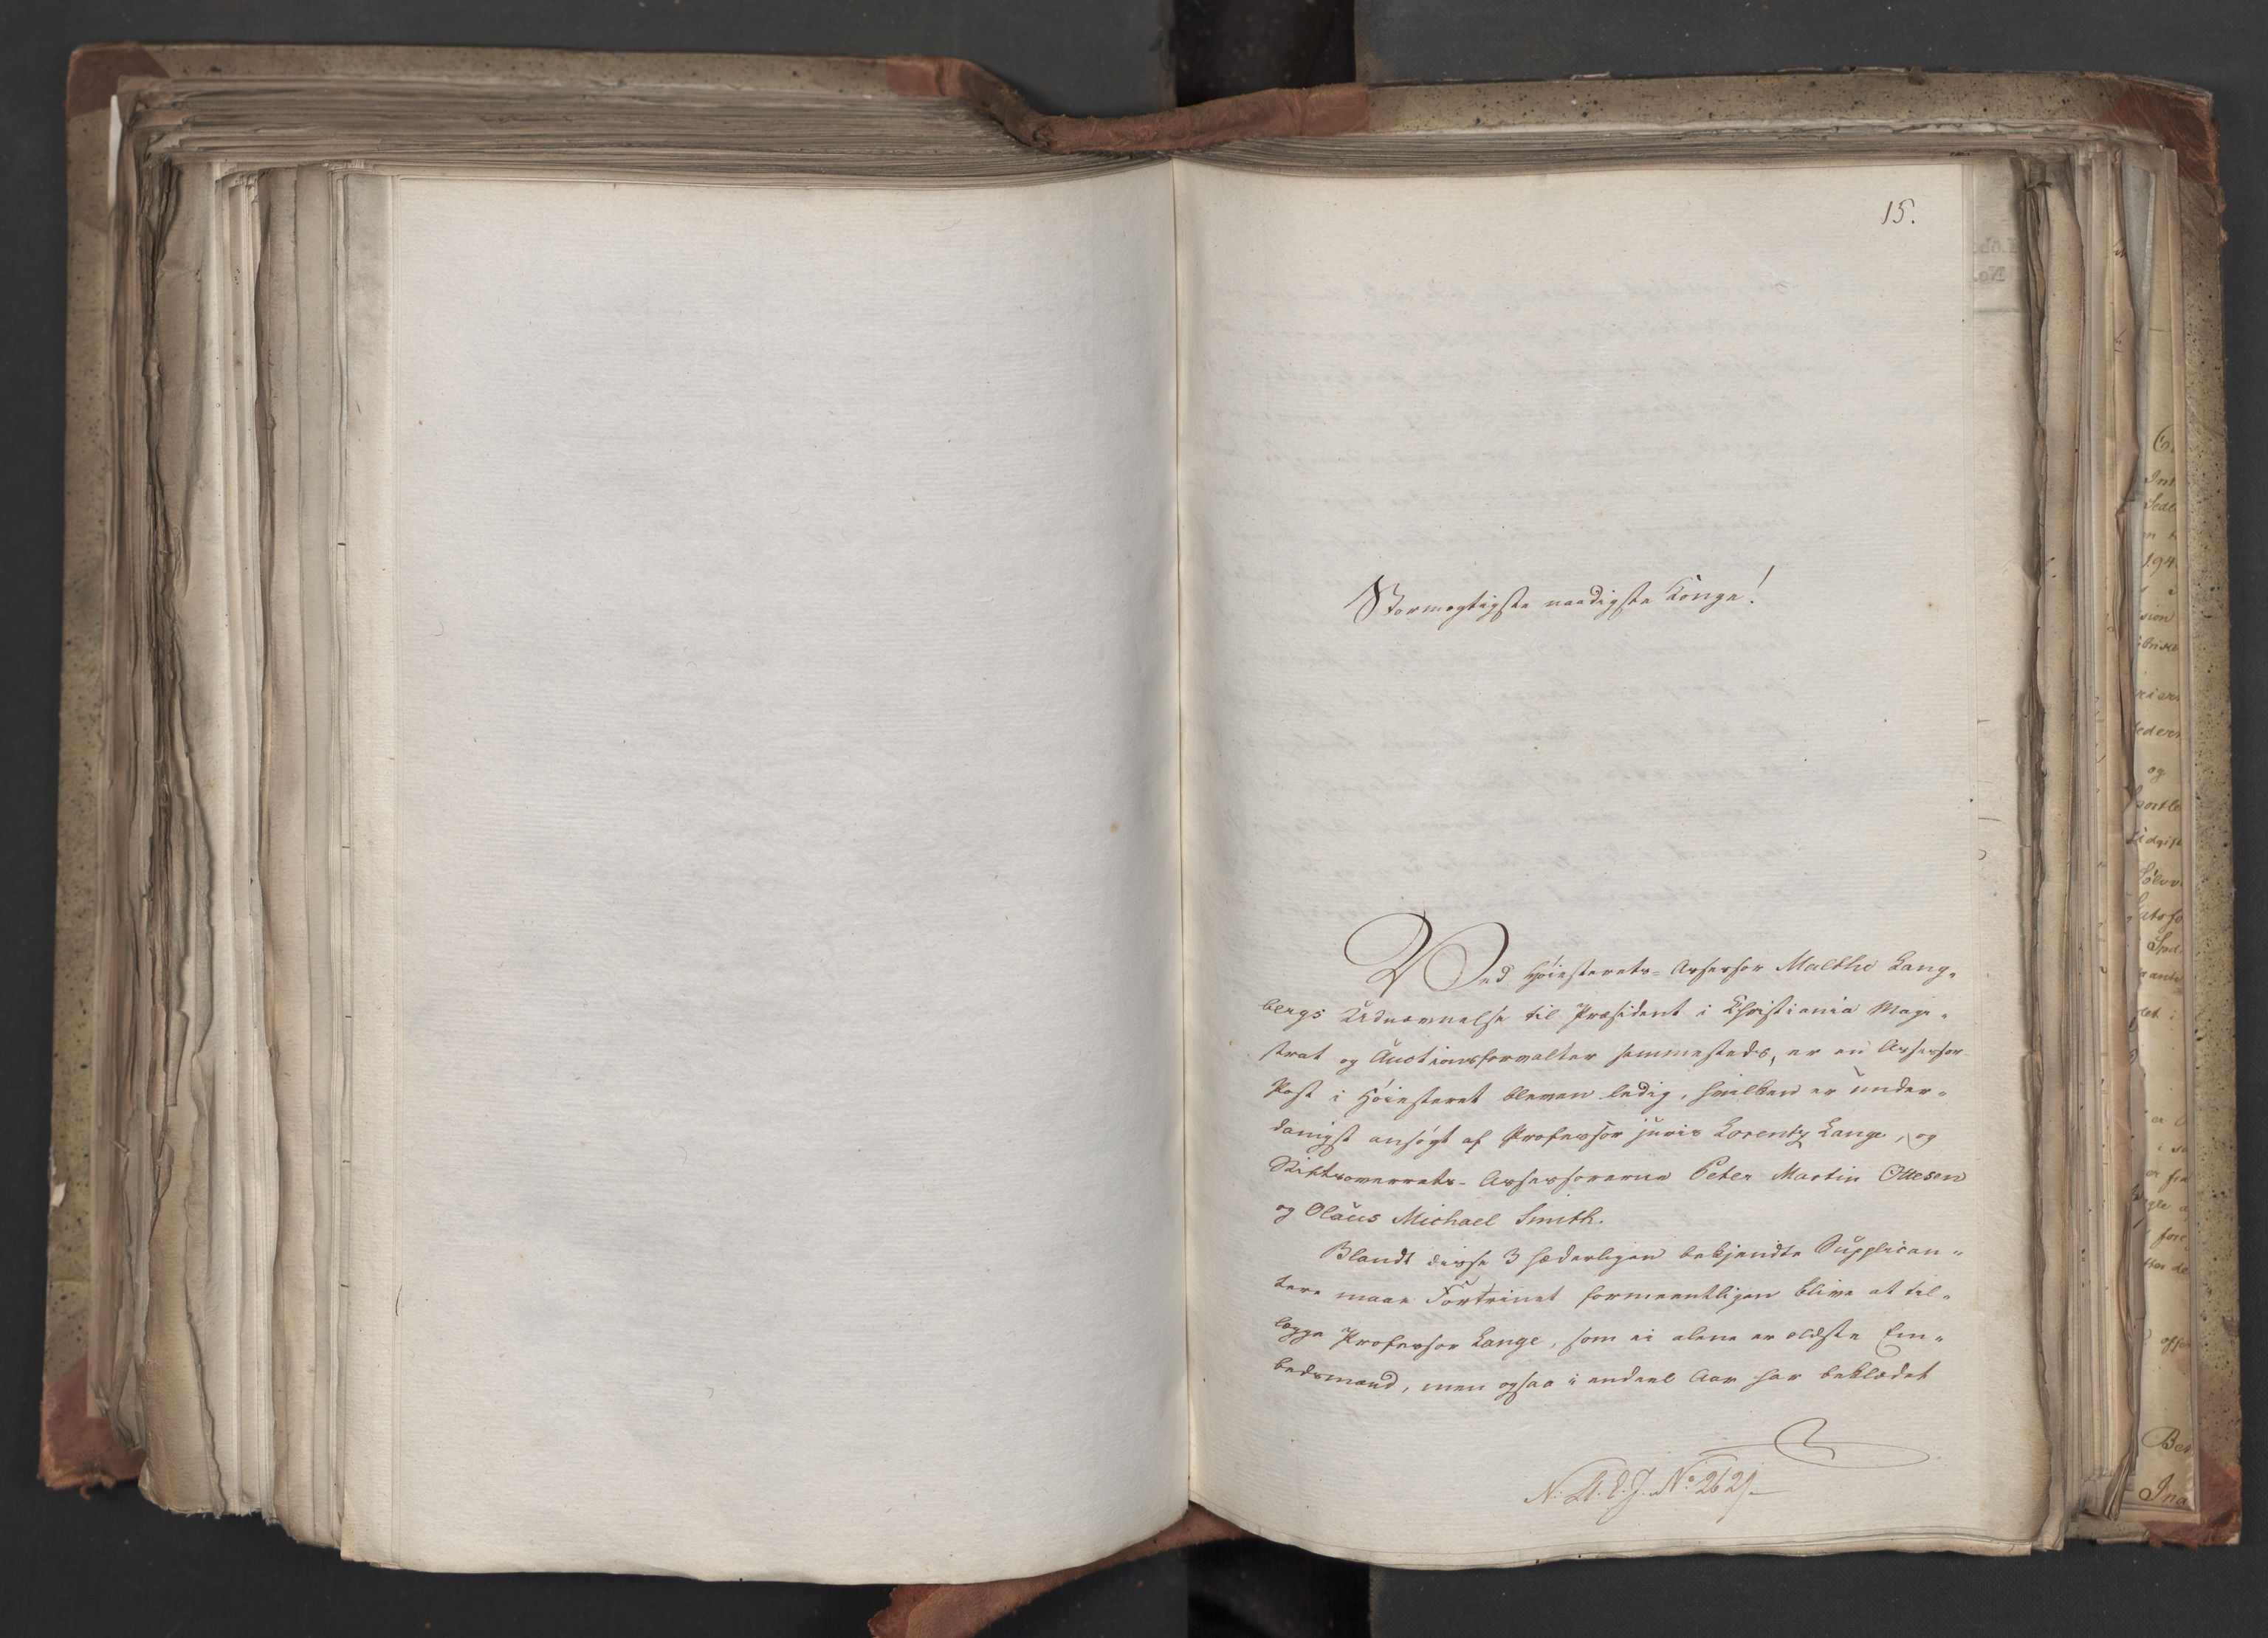 15.
Stormægtigste naadigste Konge!
Ved Høiesterets-Assessor Malthe Lang-
bergs Udnævnelse til Præsident i Christiania Magi-
strat og Auctionsforvalter sammesteds, er en Assessor-
Post i Høiesteret bleven ledig, hvilken er under-
danigst ansøgt af Professor juris Lorentz Lange, og
Stiftsoverrets-Assessorerne Peter Martin Ottesen
og Olaus Michael Smith.
Blandt disse 3 hæderligen bekjendte Supplican-
tere maae Fortrinet formeentligen blive at til-
lægge Professor Lange, som ei alene er ældste Em-
bedsmand, men ogsaa i endeel Aar har beklædet
No. 262/